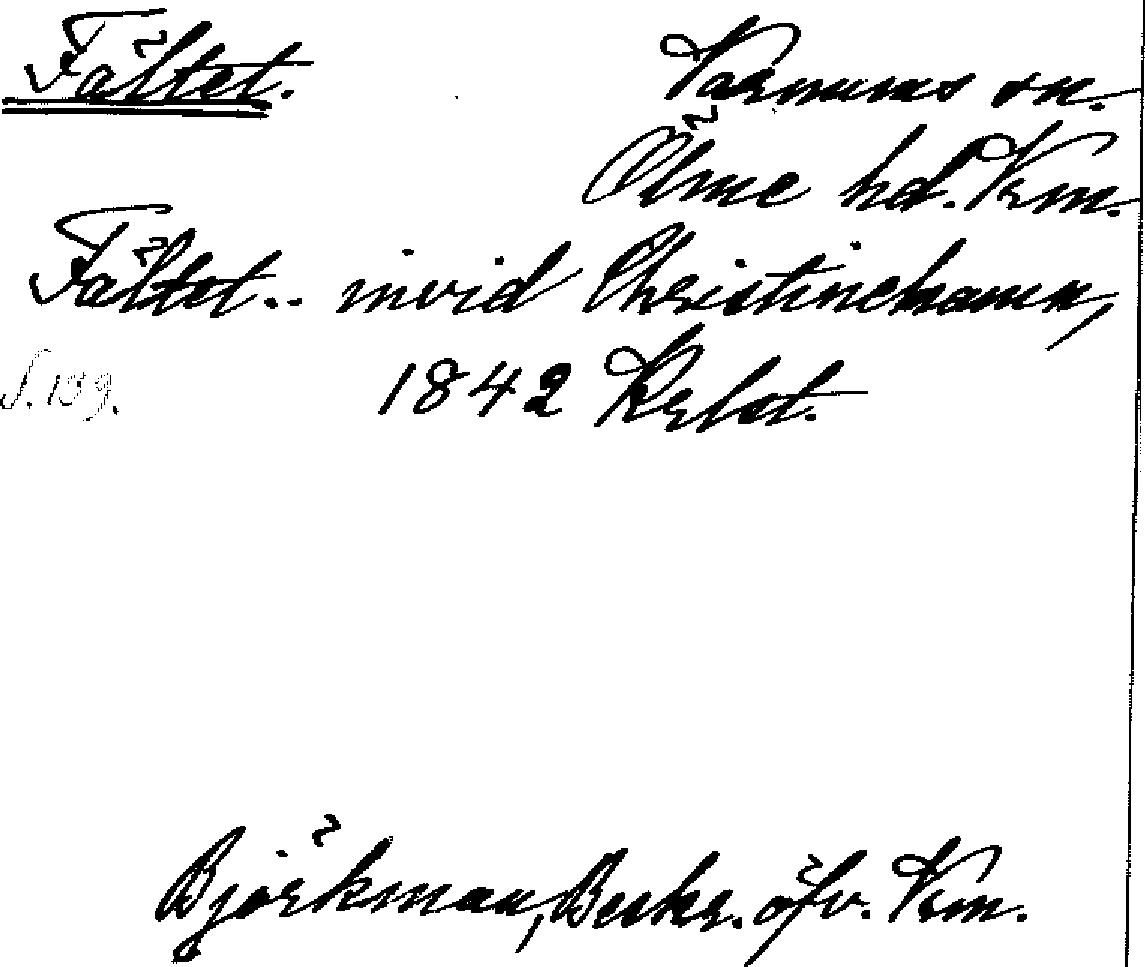 Fältet. Varnums sn.
Ölme hd. Vrm.
Fältet.. invid Christinehamn,
s. 139. 1842 Krbst.
Björkman, Beskr. öfv. Vrm.